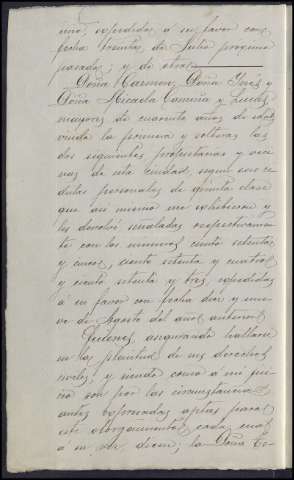 mino, expedidas á su favor con
fecha treinta de Julio proximo
pasado; y de otra
Doña Carmen, Doña Inés y
Doña Micaela
mayores de cuarenta años de edad
viuda la primera y solteras las
dos siguientes propietarias y veci
nas de esta ciudad, segun sus ce
dulas personales de quinta clase
que asi mismo me exhibieron y
les devolví señaladas respectivamen
te con los numeros ciento setenta
y cinco, ciento setenta y cuatro
y ciento setenta y tres expedidas
á su favor con fecha diez y nue
ve de Agosto del año anterior
Quienes, asegurando hallarse
en la plenitud de sus derechos
civiles, y siendo como á mi jui
cio son por las circunstancias
antes expresadas aptas para
este otorgamiento, cada cual
á su vez dicen; la Doña